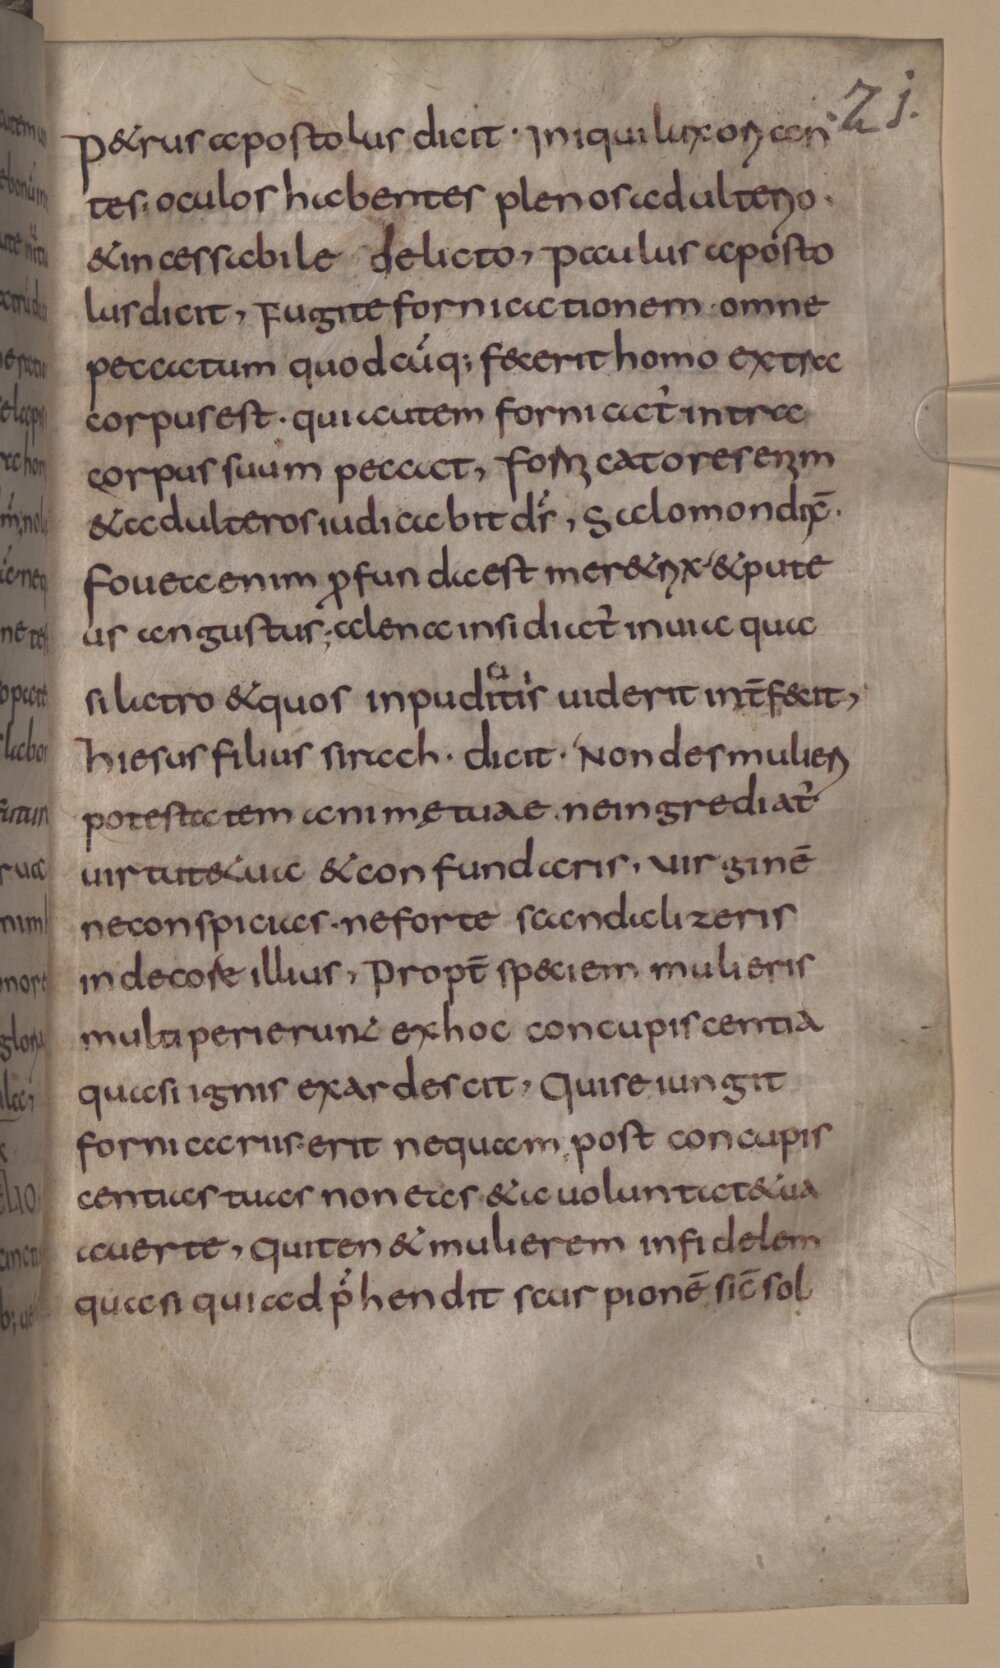 21.
P&rus apostolus dicit · Iniqui luxorian
tes · oculos habentes plenos adulterio ·
& incessabile delicto, Paulus aposto
lus dicit, Fugite fornicationem · omne
peccatum quodcūq; fecerit homo extra
corpus est · qui autem fornicat̉ intra
corpus suum peccat, Fornicatores enim
& adulteros iudicabit d̅s̅, Salomon dix̄ ·
Fouea enim ꝓfunda est mer&rix & pute
us angustus; alena insidiat̉ in uia qua
si latro & quos inpuditiis uiderit int̄fecit,
hiesus filius sirach · dicit · Non des mulieri
potestatem animę tuae · ne ingrediat̉
uirtut& ua & confundaris, Virginē
ne conspicias · ne forte scandalizeris
in decore illius, Propt̄ speciem mulieris
multi perierunt ex hoc concupiscentia
quasi ignis exardescit, Qui se iungit
fornicariis · erit nequam, post concupis
centias tuas non eas & a uoluntat& ua
auerte, Qui ten& mulierem infidelem
quasi qui adp̄hendit scurpionē sic̄ sol